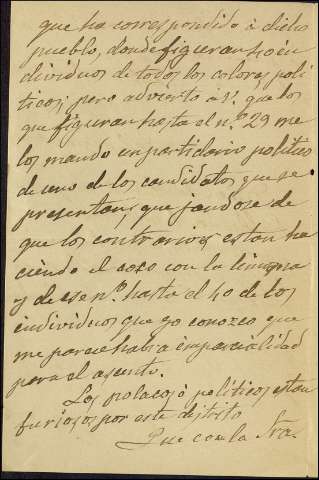 que ha correspondido á dicho
pueblo, donde figuran 40 in
dividuos de todos los colores poli
ticos; pero advierto á V. que los
que figuran hasta el n.º 29 me
los mando un partidario politico
de uno de los candidatos que se
presentan, quejandose de
que los contrarios estan ha
ciendo el coco con la
y de ese n.º hasta el 40 de los
individuos que yo conozco que
me parece habra imparcialidad
para el asunto.
Los polacos ó politicos estan
furiosos por este distrito
Que con la Sra.